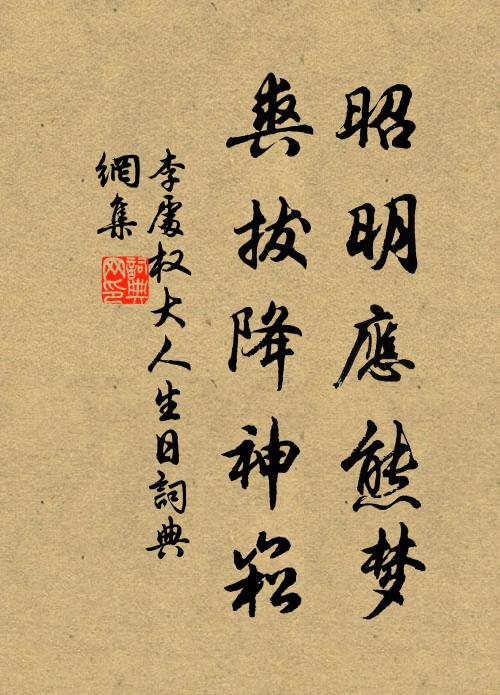 昭明應熊梦
爽拔降神崧
李處权大人生日詞典
網集
詞典
网印